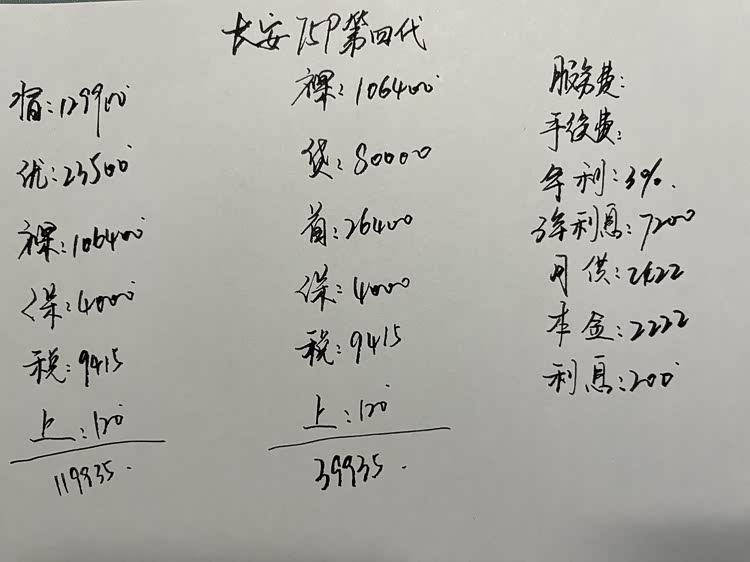 长安75P第四代
指:129900
优:23500
裸:106400
保:4000
税:9415
上:120
119935.
裸:106400
贷:80000
首:26400
保:4000
税:9415
上:120
39935.
服务费:
手续费:
年利:3%.
3年利息:7200
月供:2422
本金:2222
利息:200